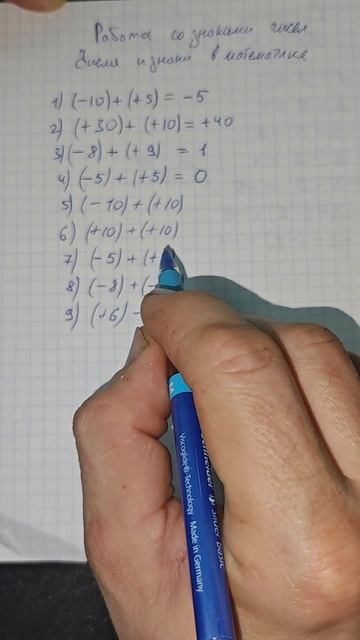 Работа со знаками чисел
Числа и знаки в математике
1) (-10)+(+5) = -5
2) (+30)+(+10)=+40
3) (-8)+(+9) = 1
4) (-5)+(+5) = 0
5) (-10)+(+10)
6) (+10)+(+10)
7) (-5)+(+
8) (-8)+(-
9) (+6)
Schneider Slider Basic
Viscoglide®-Technology Made in Germany